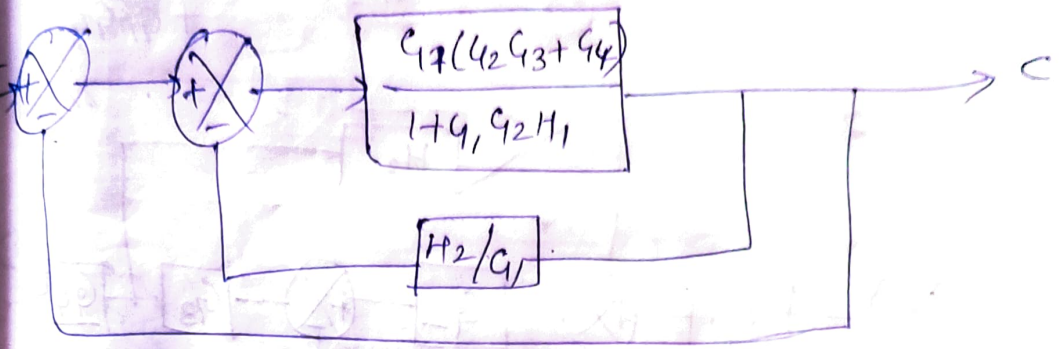 G1(G2G3+G4)
1+G1G2H1
C
+
-
+
-
H2/G1